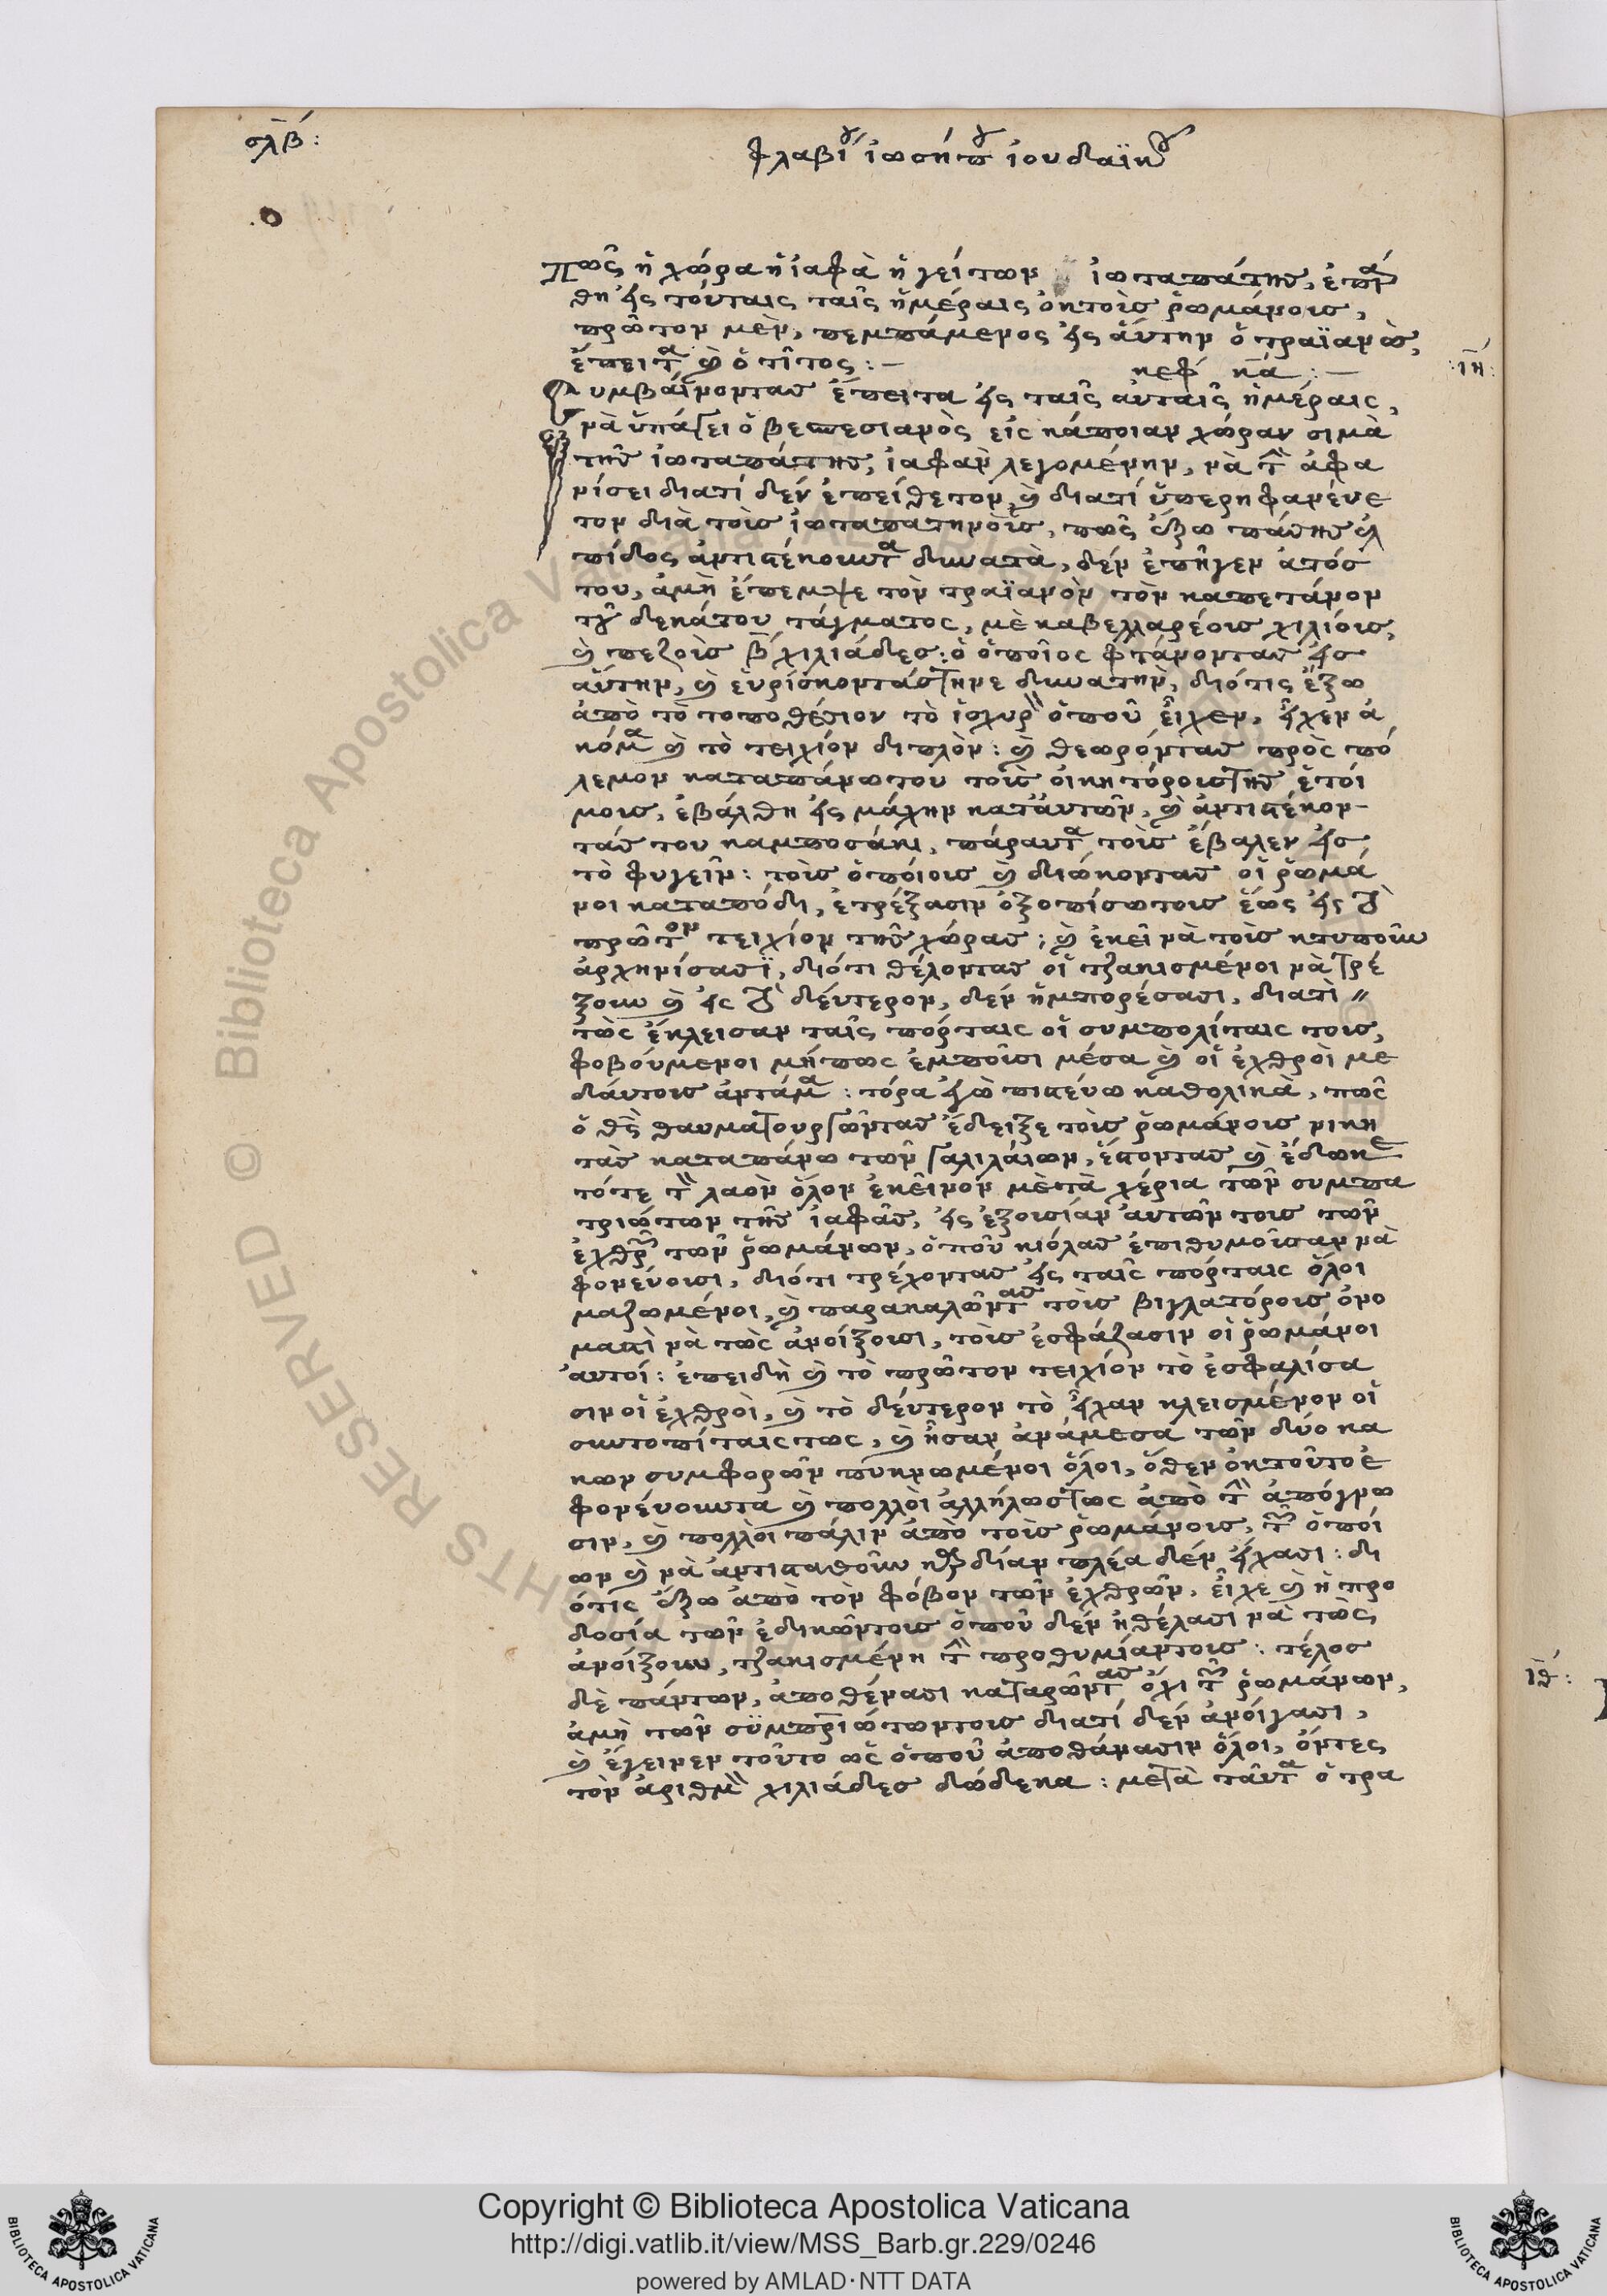 σλβ´:
φλαβίου ἰωσήπου ἰουδαϊκοῦ
πῶς ἡ χώρα ἡ ἰαφὰ ἡ γείτων ἰωταπάτης, ἐπιά
θη εἰς τούταις ταῖς ἡμέραις ἐκ τοὺς ῥωμάνους,
πρῶτον μὲν, πεμπάμενος εἰς αὕτην ὁ τραϊανὸς,
ἔπειτα καὶ ὁ τῖτος :–
κεφ κα :–
ιη:
Συμβαίνοντας ἔπειτα εἰς ταῖς αὐταῖς ἡμέραις,
νὰ ὑπάγει ὁ βεσπεσιανὸς εἰς κάποιαν χώραν σιμὰ
τῆς ἰωταπάτης, ἰαφὰν λεγομένην, νὰ τὴν ἀφα
νίσει διατί δὲν ἐπείθετον, καὶ διατί ὑπερηφανένε
τον διὰ τοὺς ἰωταπατηνοὺς, πῶς ἔξω πάσης ἐλ
πίδος ἀντιστέκουνται δυνατὰ, δὲν ἐπῆγεν ἀτόσ
του, ἀμὴ ἔπεμψε τὸν τραϊανὸν τὸν καπετάνον
τοῦ δεκάτου τάγματος, μὲ καβελλαρέους χιλίους,
καὶ πεζοὺς β χιλιάδες: ὁ ὁποῖος φτάνοντας εἰς
αὕτην, καὶ εὑρίσκοντάς τηνε δυνατὴν, διότις ἔξω
ἀπὸ τὸ τοποθέσιον τὸ ἰσχυρὸν ὁποῦ εἶχεν, εἶχεν ἀ
κόμα καὶ τὸ τειχίον διπλὸν: καὶ θεωρόντας πρὸς πό
λεμον καταπάνωτου τοὺς οἰκητόρους της ἑτοί
μους, ἐβάλθη εἰς μάχην κατ᾽ αὐτῶν, καὶ ἀντιστέκον-
τάς του καμποσάκι, πάραυτα τοὺς ἔβαλεν εἰς
τὸ φυγεῖν: τοὺς ὁποίους καὶ διώκοντας οἱ ῥωμά
νοι καταπόδι, ἐτρέξασιν ὀξοπίσωτους ἕως εἰς τὸ
πρῶτον τειχίον τῆς χώρας; καὶ ἐκεῖ νὰ τοὺς κτυποῦν
ἀρχηνίσασϊ, διότι θέλοντας οἱ τζακισμένοι νὰ τρέ
ξουν καὶ εἰς τὸ δεύτερον, δὲν ἠμπορέσασι, διατὶ〃
τῶς ἔκλεισαν ταῖς πόρταις οἱ συμπολίταις τους,
φοβούμενοι μήπως ἐμποῦσι μέσα καὶ οἱ ἐχθροὶ με
δάυτους ἀντάμα: τόρα ἐγὼ πιστεύω καθολικὰ, πῶς
ὁ θεὸς θαυματουργῶντας ἔδειξε τοὺς ῥωμάνους νικη
τὰς καταπάνω τῶν γαλιλάιων, ἔστοντας καὶ ἔδωκε
τότε τὸν λαὸν ὅλον ἐκεῖνον μὲ τὰ χέρια τῶν συμπα
τριώτων τῆς ἰαφᾶς, εἰς ἐξουσίαν αὐτῶν τους τῶν
ἐχθρῶν τῶν ῥωμάνων, ὁποῦ κιόλας ἐπιθυμοῦσαν νὰ
φονεύουσι, διότι τρέχοντας εἰς ταῖς πόρταις ὅλοι
μαζωμένοι, καὶ παρακαλῶντας τοὺς βιγλατόρους ὀνο
μαστὶ νὰ τῶς ἀνοίξουσι, τοὺς ἐσφάζασιν οἱ ῥωμάνοι
αὐτοί: ἐπειδὴ καὶ τὸ πρῶτον τειχίον τὸ ἐσφαλίσα
σιν οἱ ἐχθροὶ, καὶ τὸ δεύτερον τὸ εἶχαν κλεισμένον οἱ
συντοπίταις τως, καὶ ἦσαν ἀνάμεσα τῶν δύο κα
κων συμφορῶν πυκνωμένοι ὅλοι, ὅθεν ἐκ τοῦτο ἐ
φονέυουντα καὶ πολλοὶ ἀλλήλωςτως ἀπὸ τὴν ἀπόγνω
σιν, καὶ πολλοὶ πάλιν ἀπὸ τοὺς ῥωμάνους, τῶν ὁποί
ων καὶ νὰ ἀντισταθοῦν καρδίαν πλέα δὲν εἴχασι: δι
ότις ἔξω ἀπὸ τὸν φόβον τῶν ἐχθρῶν, εἶχε καὶ ἡ προ
δοσία τῶν ἐδικῶντους ὁποῦ δὲν ἠθέλασι νὰ τῶς
ἀνοίξουν, τζακισμένη τὴν προθυμίαντους: τέλος
δὲ πάντων, ἀποθένασι καταρῶντας ὄχι τῶν ῥωμάνων,
ιθ:
ἀμὴ τῶν συμπατριώτωντους διατί δὲν ἀνοίγασι,
καὶ ἔγεινεν τοῦτο ὣς ὁποῦ ἀποθάνασιν ὅλοι, ὄντες
τὸν ἀριθμὸν χιλιάδες δώδεκα: μετὰ ταῦτα ὁ τρα
Copyright © Biblioteca Apostolica Vaticana
http://digi.vatlib.it/view/MSS_Barb.gr.229/0246
powered by AMLAD·NTT DATA
BIBLIOTECA APOSTOLICA VATICANA
BIBLIOTECA APOSTOLICA VATICANA